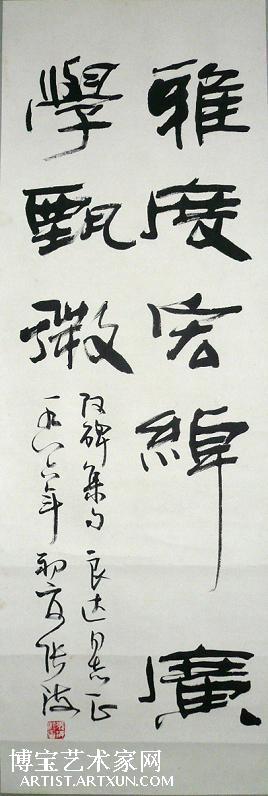 雅度宏綽廣
學甄微
汉碑集句 良达同志正
一九八六年初夏张海
博宝艺术家网
ARTIST.ARTXUN.COM